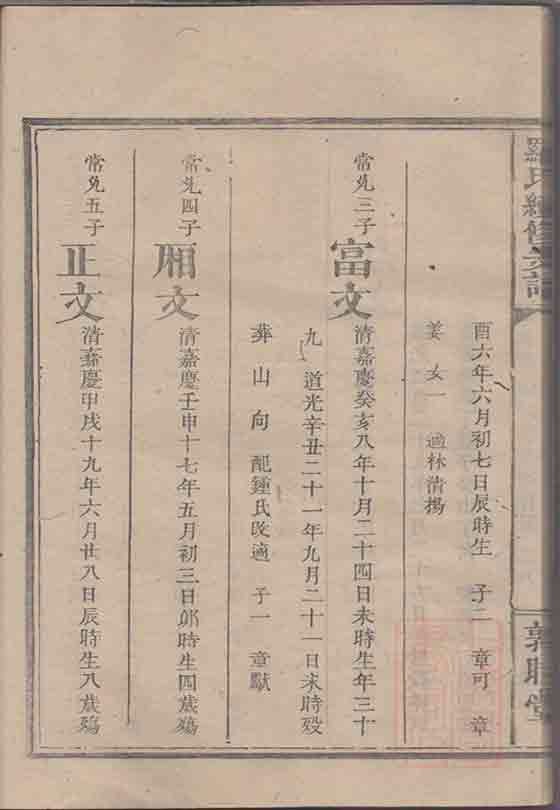 羅氏經修宗譜
敦睦堂
酉六年六月初七日辰時生 子二 章可 章
姜 女一 適林清揚
常先三子
富文
清嘉慶癸亥八年十月二十四日未時生年三十
九 道光辛丑二十一年九月二十一日未時歿
葬 山 向 配鍾氏改適 子一 章獻
常先四子
厢文
清嘉慶壬申十七年五月初三日卯時生四歲殤
常先五子
正文
清嘉慶甲戌十九年六月廿八日辰時生八歲殤